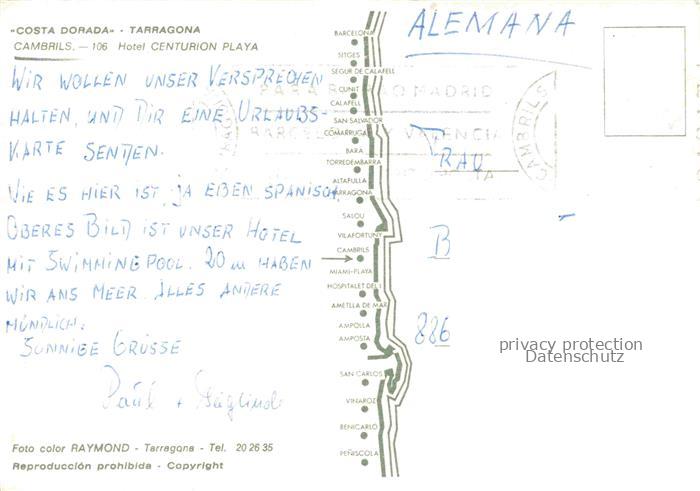 "COSTA DORADA" - TARRAGONA
CAMBRILS. — 106 Hotel CENTURION PLAYA
WIR WOLLEN UNSER VERSPRECHEN
HALTEN, UND DIR EINE URLAUBS-
KARTE SENDEN.
WIE ES HIER IST, JA EBEN SPANISCH.
OBERES BILD IST UNSER HOTEL
MIT SWIMMINGPOOL. 20 m HABEN
WIR ANS MEER. ALLES ANDERE
MÜNDLICH.
SONNIGE GRÜSSE
Paul + Sieglinde
Foto color RAYMOND - Tarragona - Tel. 20 26 35
Reproducción prohibida - Copyright
BARCELONA
SITGES
SEGUR DE CALAFELL
CUNIT
CALAFELL
SAN SALVADOR
COMARRUGA
BARA
TORREDEMBARRA
ALTAFULLA
TARRAGONA
SALOU
VILAFORTUNY
CAMBRILS
MIAMI-PLAYA
HOSPITALET DEL I.
AMETLLA DE MAR
AMPOLLA
AMPOSTA
SAN CARLOS
VINAROZ
BENICARLO
PEÑISCOLA
ALEMANA
MADRID
BARCELONA Y VALENCIA
CAMBRILS
FRAU
B
886
privacy protection
Datenschutz